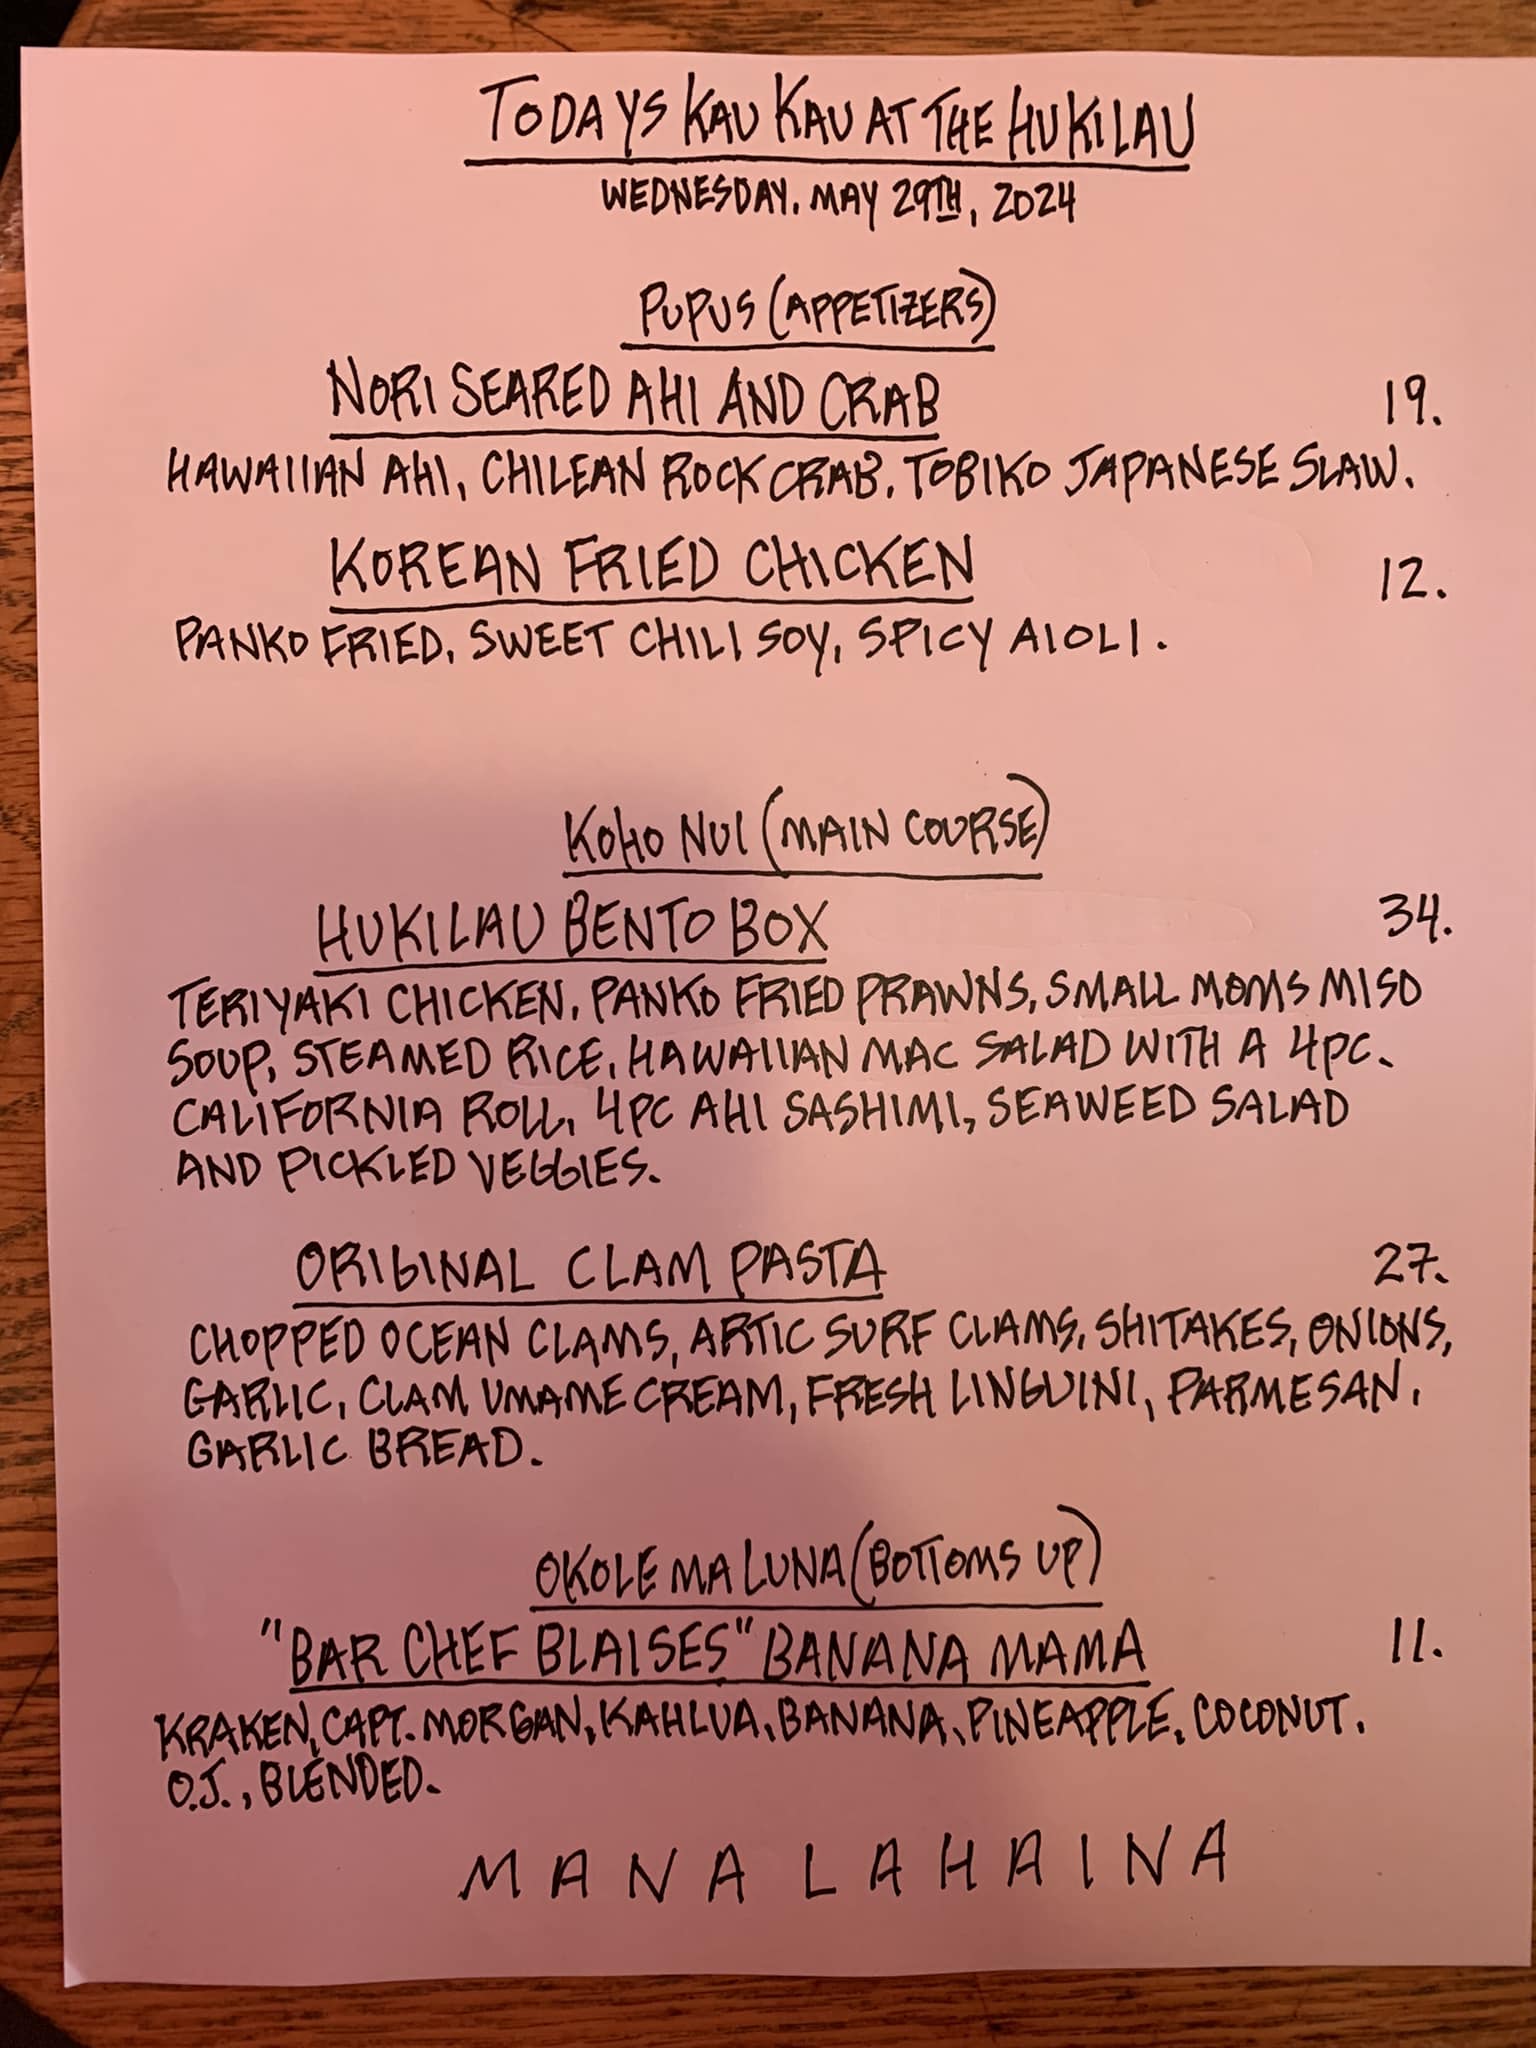 TODAYS KAU KAU AT THE HUKILAU
WEDNESDAY, MAY 29TH, 2024
PUPUS (APPETIZERS)
NORI SEARED AHI AND CRAB 19.
HAWAIIAN AHI, CHILEAN ROCK CRAB, TOBIKO JAPANESE SLAW.
KOREAN FRIED CHICKEN 12.
PANKO FRIED, SWEET CHILI SOY, SPICY AIOLI.
KOHO NUI (MAIN COURSE)
HUKILAU BENTO BOX 34.
TERIYAKI CHICKEN, PANKO FRIED PRAWNS, SMALL MOMS MISO
SOUP, STEAMED RICE, HAWAIIAN MAC SALAD WITH A 4PC.
CALIFORNIA ROLL, 4PC AHI SASHIMI, SEAWEED SALAD
AND PICKLED VEGGIES.
ORIGINAL CLAM PASTA 27.
CHOPPED OCEAN CLAMS, ARTIC SURF CLAMS, SHITAKES, ONIONS,
GARLIC, CLAM UMAME CREAM, FRESH LINGUINI, PARMESAN,
GARLIC BREAD.
OKOLE MA LUNA (BOTTOMS UP)
"BAR CHEF BLAISES" BANANA MAMA 11.
KRAKEN, CAPT. MORGAN, KAHLUA, BANANA, PINEAPPLE, COCONUT,
O.J., BLENDED.
MANA LAHAINA